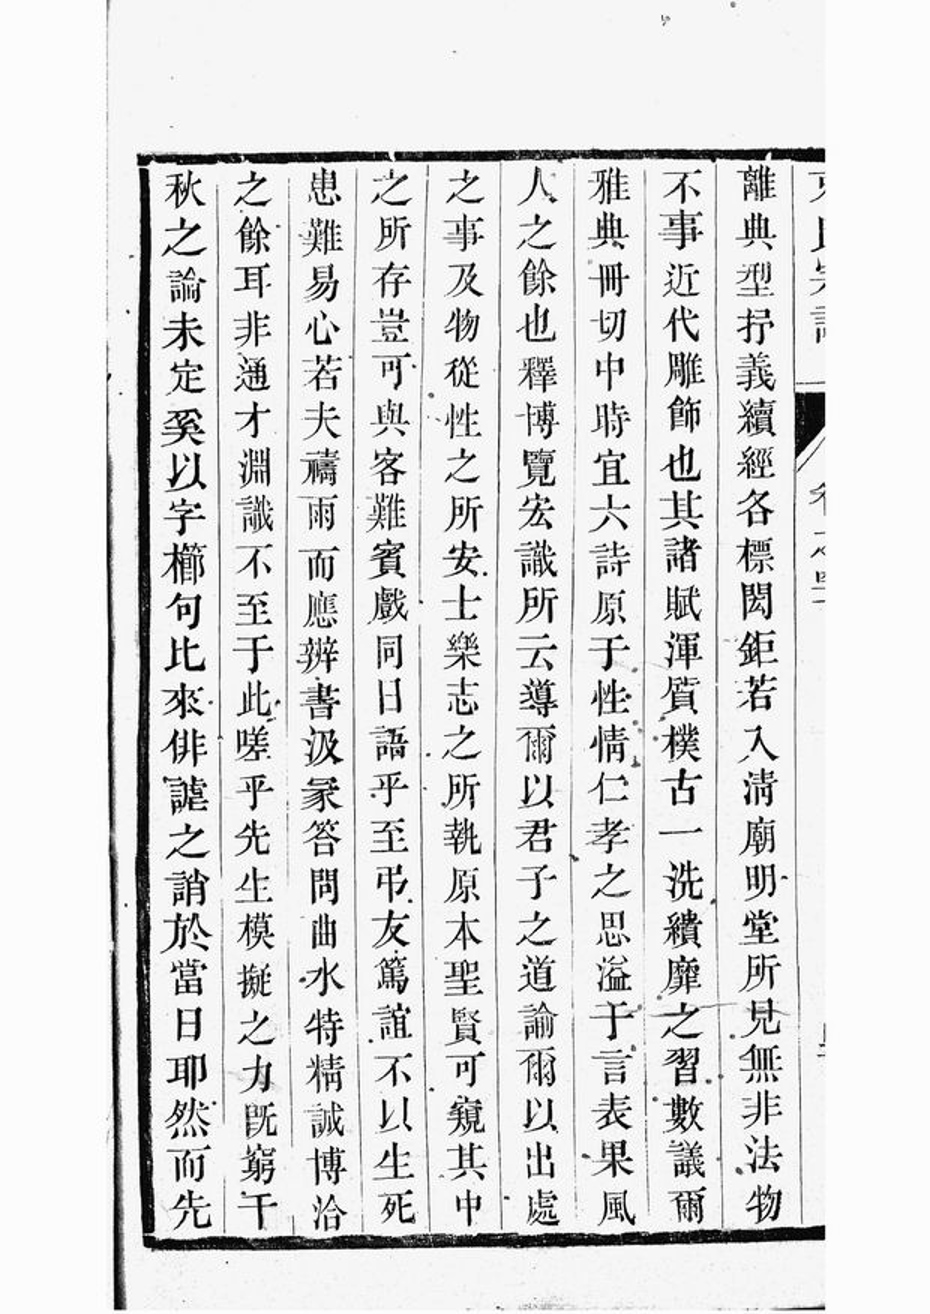 離典型抒義續經各標閎鉅若入淸廟明堂所見無非法物
不事近代雕飾也其諸賦渾質樸古一洗繢靡之習數議爾
雅典冊切中時宜六詩原于性情仁孝之思溢于言表果風
人之餘也釋博覽宏識所云導爾以君子之道諭爾以出處
之事及物從性之所安士樂志之所執原本聖賢可窺其中
之所存豈可與客難賓戲同日語乎至弔友篤誼不以生死
患難易心若夫禱雨而應辨書汲冢答問曲水特精誠博洽
之餘耳非通才淵識不至于此嗟乎先生模擬之力旣窮干
秋之論未定奚以字櫛句比來俳謔之誚於當日耶然而先